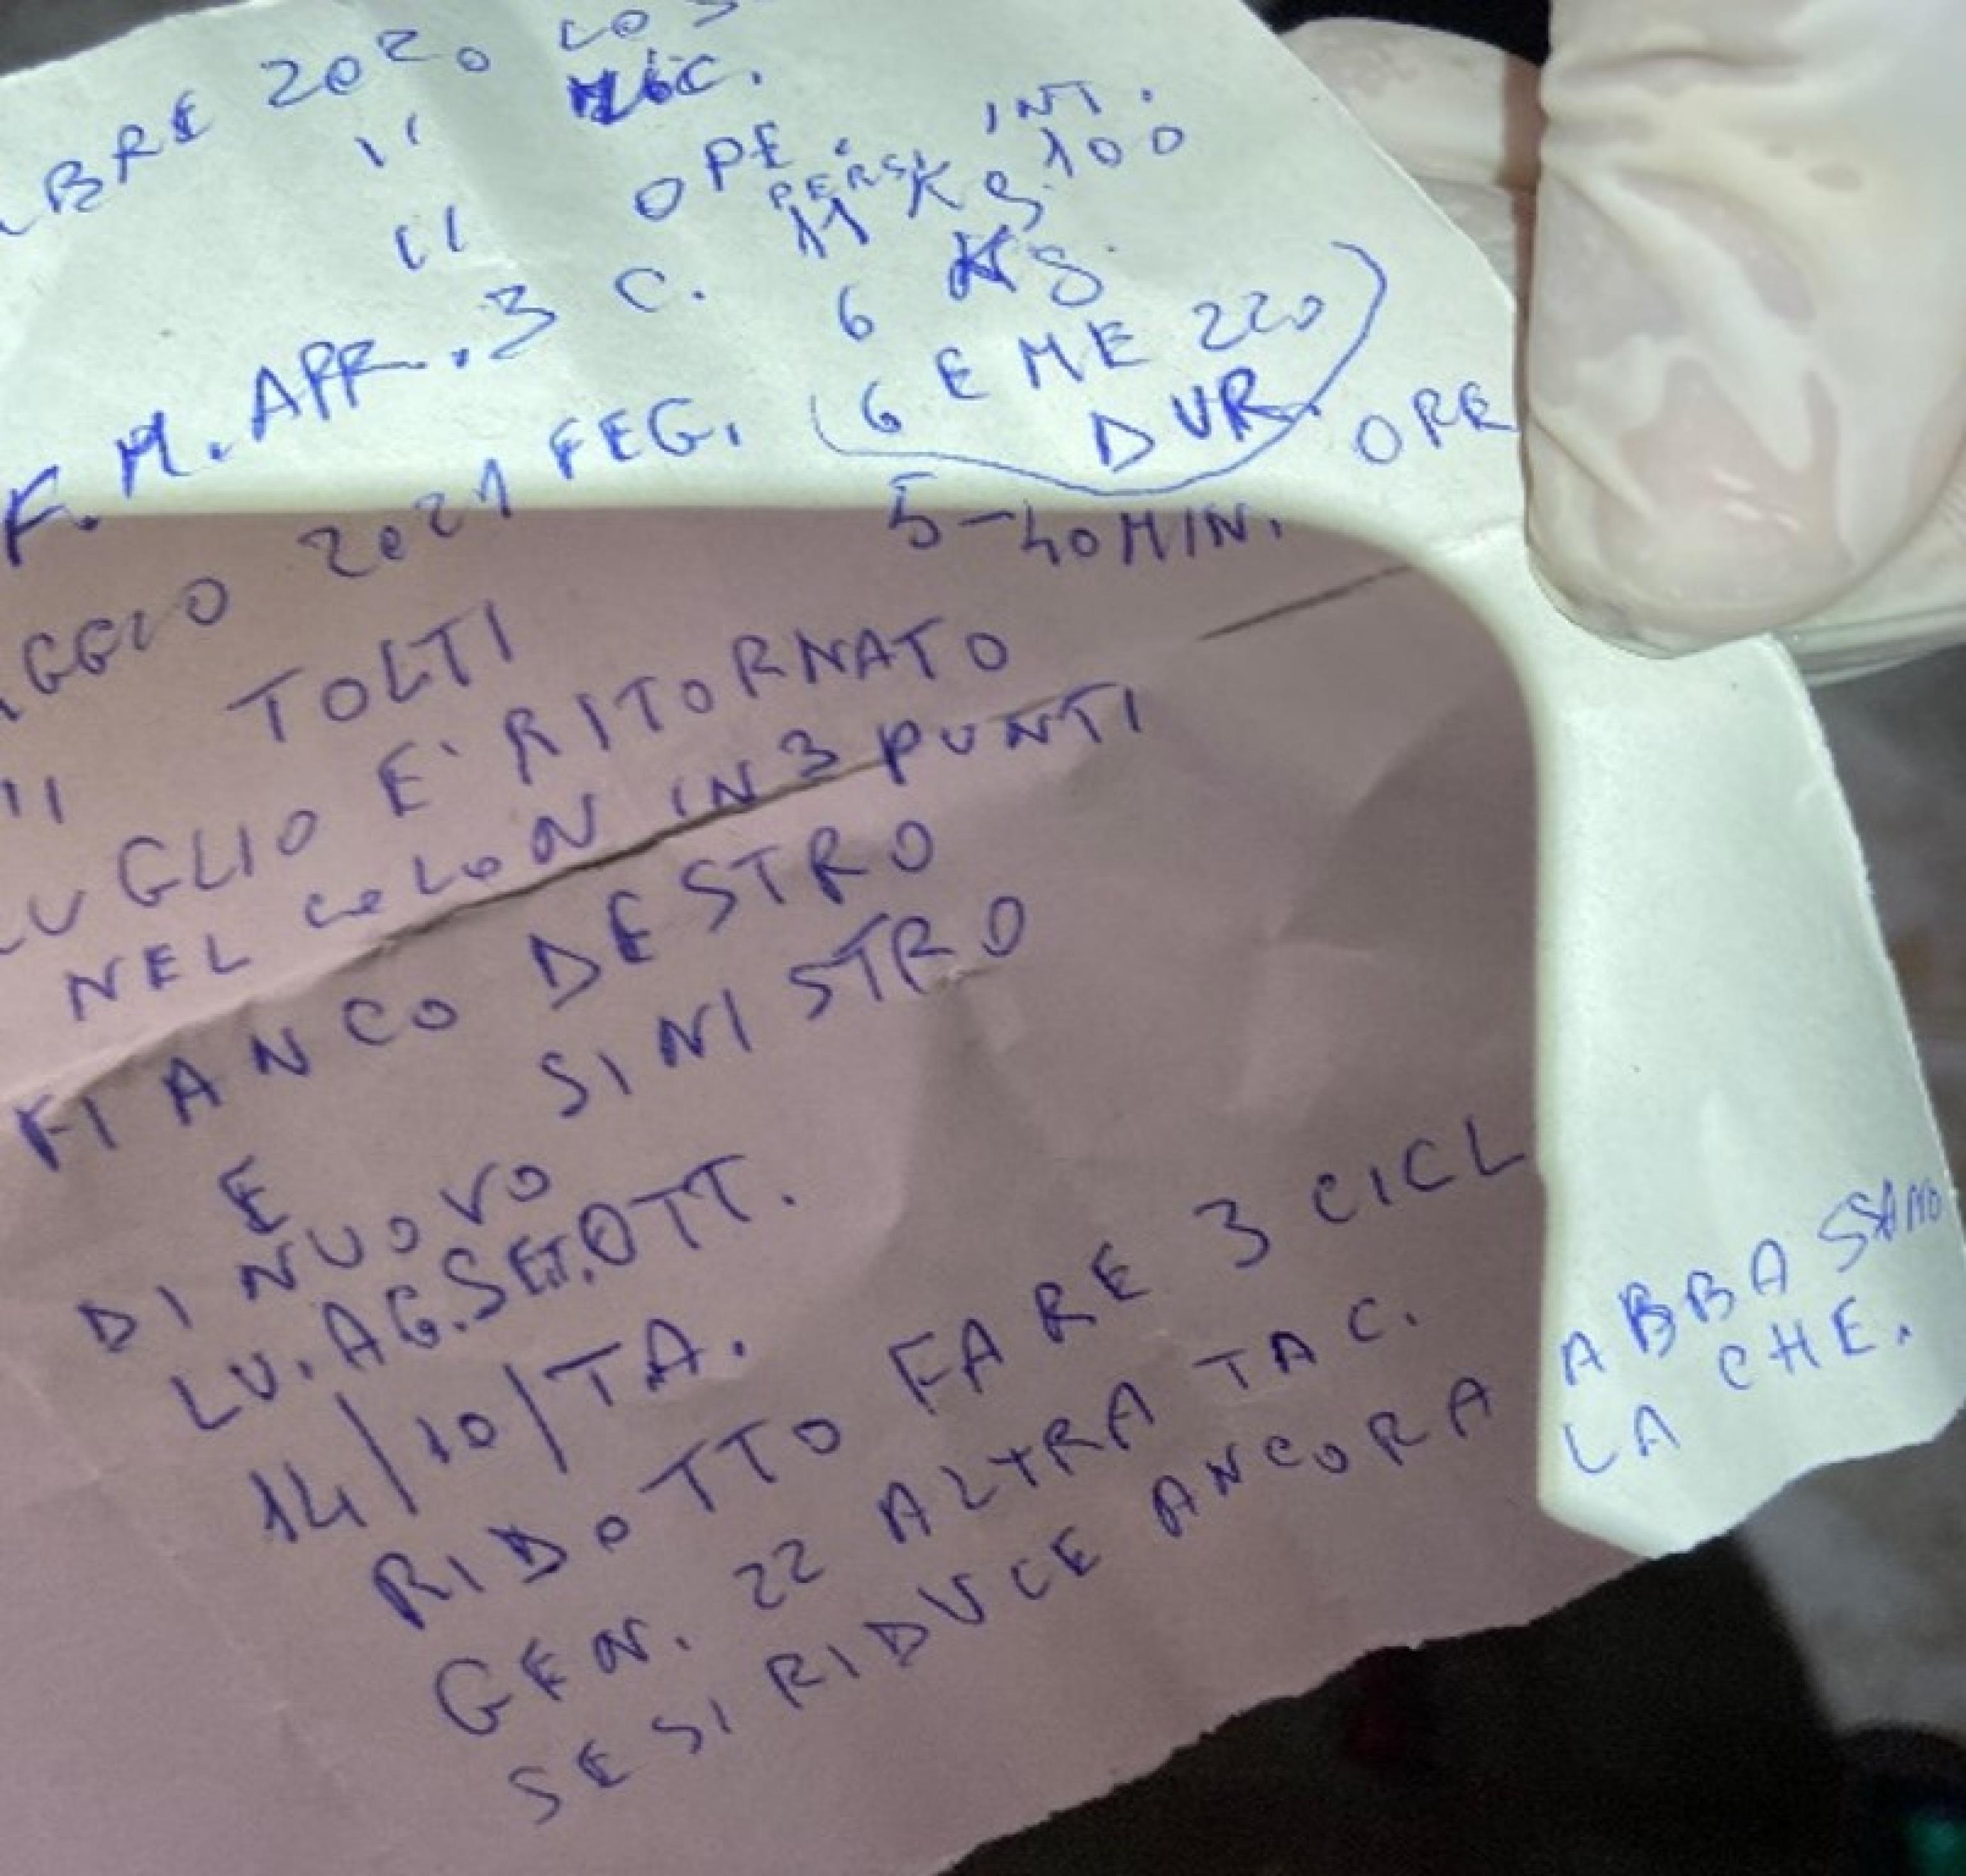 BRE 2020
" MIC.
" OPE. INT.
PERSI 11 Kg. 100
F. M. APR. 3 C. 6 Kg.
GGIO 2021 FEG. (6 EME 220 DUR. ORE
5-40 MIN.
" TOLTI
LUGLIO E' RITORNATO
NEL COLON IN 3 PUNTI
FIANCO DESTRO
E SINISTRO
DI NUOVO
LU. AG. SET. OTT.
14/10/TA.
RIDOTTO FARE 3 CICL
GEN. 22 ALTRA TAC.
SE SI RIDUCE ANCORA
ABBASSANO
LA CHE.